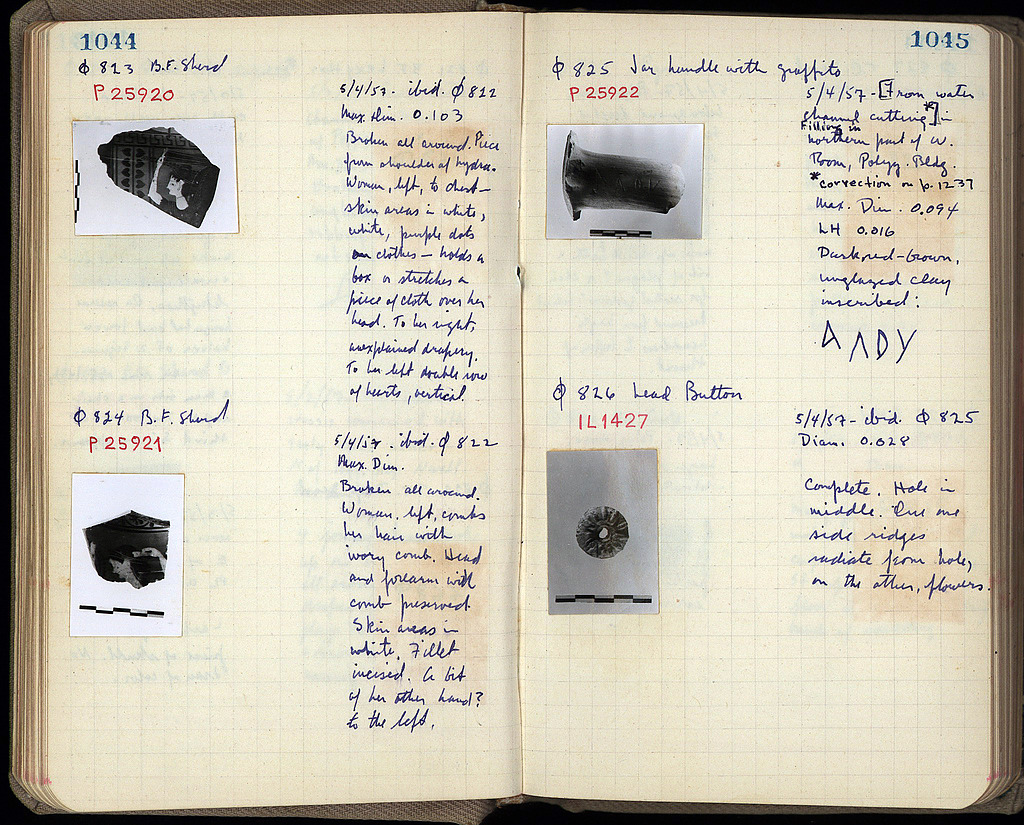 1044
Φ 823 B.F. Sherd
P 25920
5/4/57 - ibid. Φ 822
Max Dim. 0.103
Broken all around. Piece
from shoulder of hydria.
Woman, left, to chest –
skin areas in white,
white, purple dots
on clothes – holds a
box or stretches a
piece of cloth over her
head. To her right,
unexplained drapery.
To her left double row
of hearts, vertical.
Φ 824 B.F. Sherd
P 25921
5/4/57 - ibid. Φ 822
Max. Dim.
Broken all around.
Woman, left, combs
her hair with
ivory comb. Head
and forearm with
comb preserved.
Skin areas in
white. Fillet
incised. A bit
of her other hand?
to the left.
1045
Φ 825 Jar handle with graffito
P 25922
5/4/57 - [From water
channel cutting*] in
Filling in
northern part of W.
Room, Polyg. Bldg.
*correction on p. 1237
Max. Dim. 0.094
LH 0.016
Dark red-brown,
unglazed clay
inscribed:
ΑΛDY
Φ 826 Lead Button
IL1427
5/4/57 - ibid. Φ 825
Diam. 0.028
Complete. Hole in
middle. One one
side ridges
radiate from hole,
on the other, flowers.